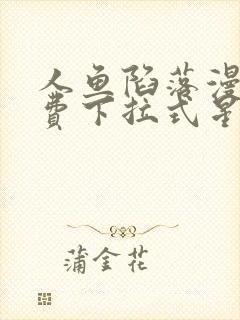 人鱼陷落漫
费下拉式星
蒲金花